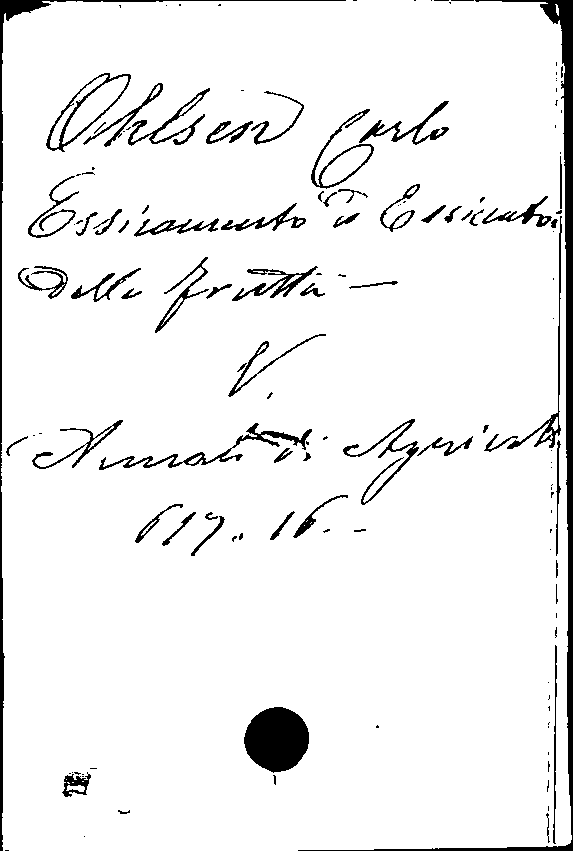 Ohlsen Carlo
Essicamento e Essicatoi
delle frutta —
V.
Annali di Agricolt
617. 16.